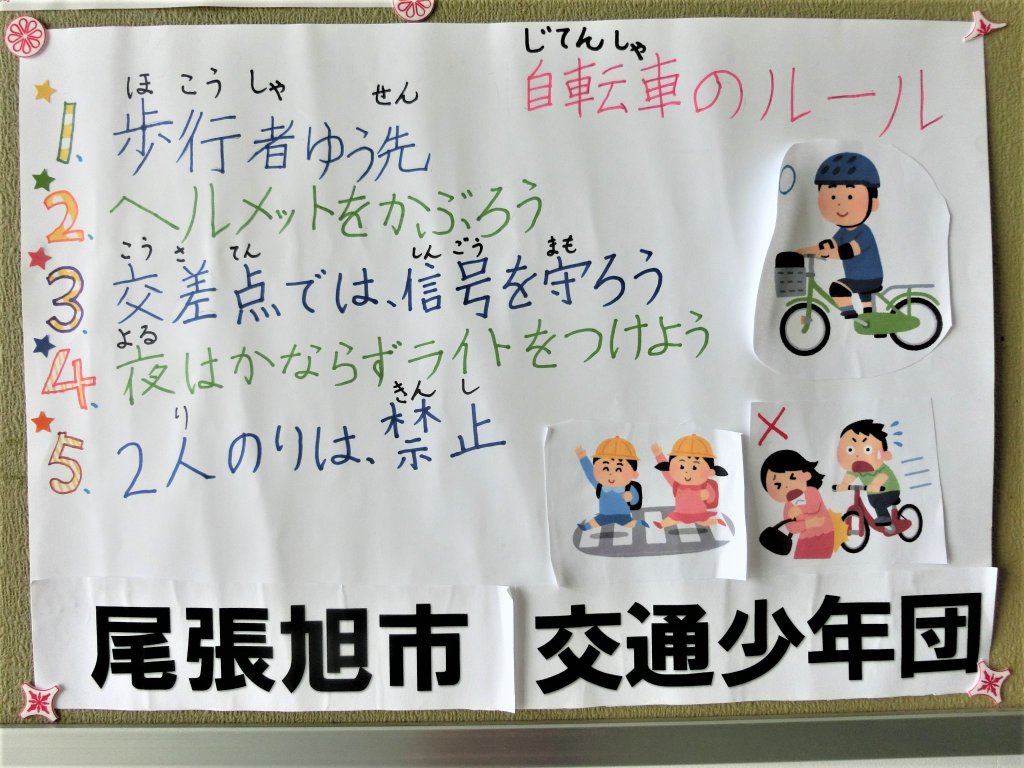 じてんしゃ
自転車のルール
ほ こう しゃ せん
1. 歩行者ゆう先
2. ヘルメットをかぶろう
こう さ てん しん ごう まも
3. 交差点では、信号を守ろう
よる
4. 夜はかならずライトをつけよう
り きん し
5. 2人のりは、禁止
尾張旭市 交通少年団